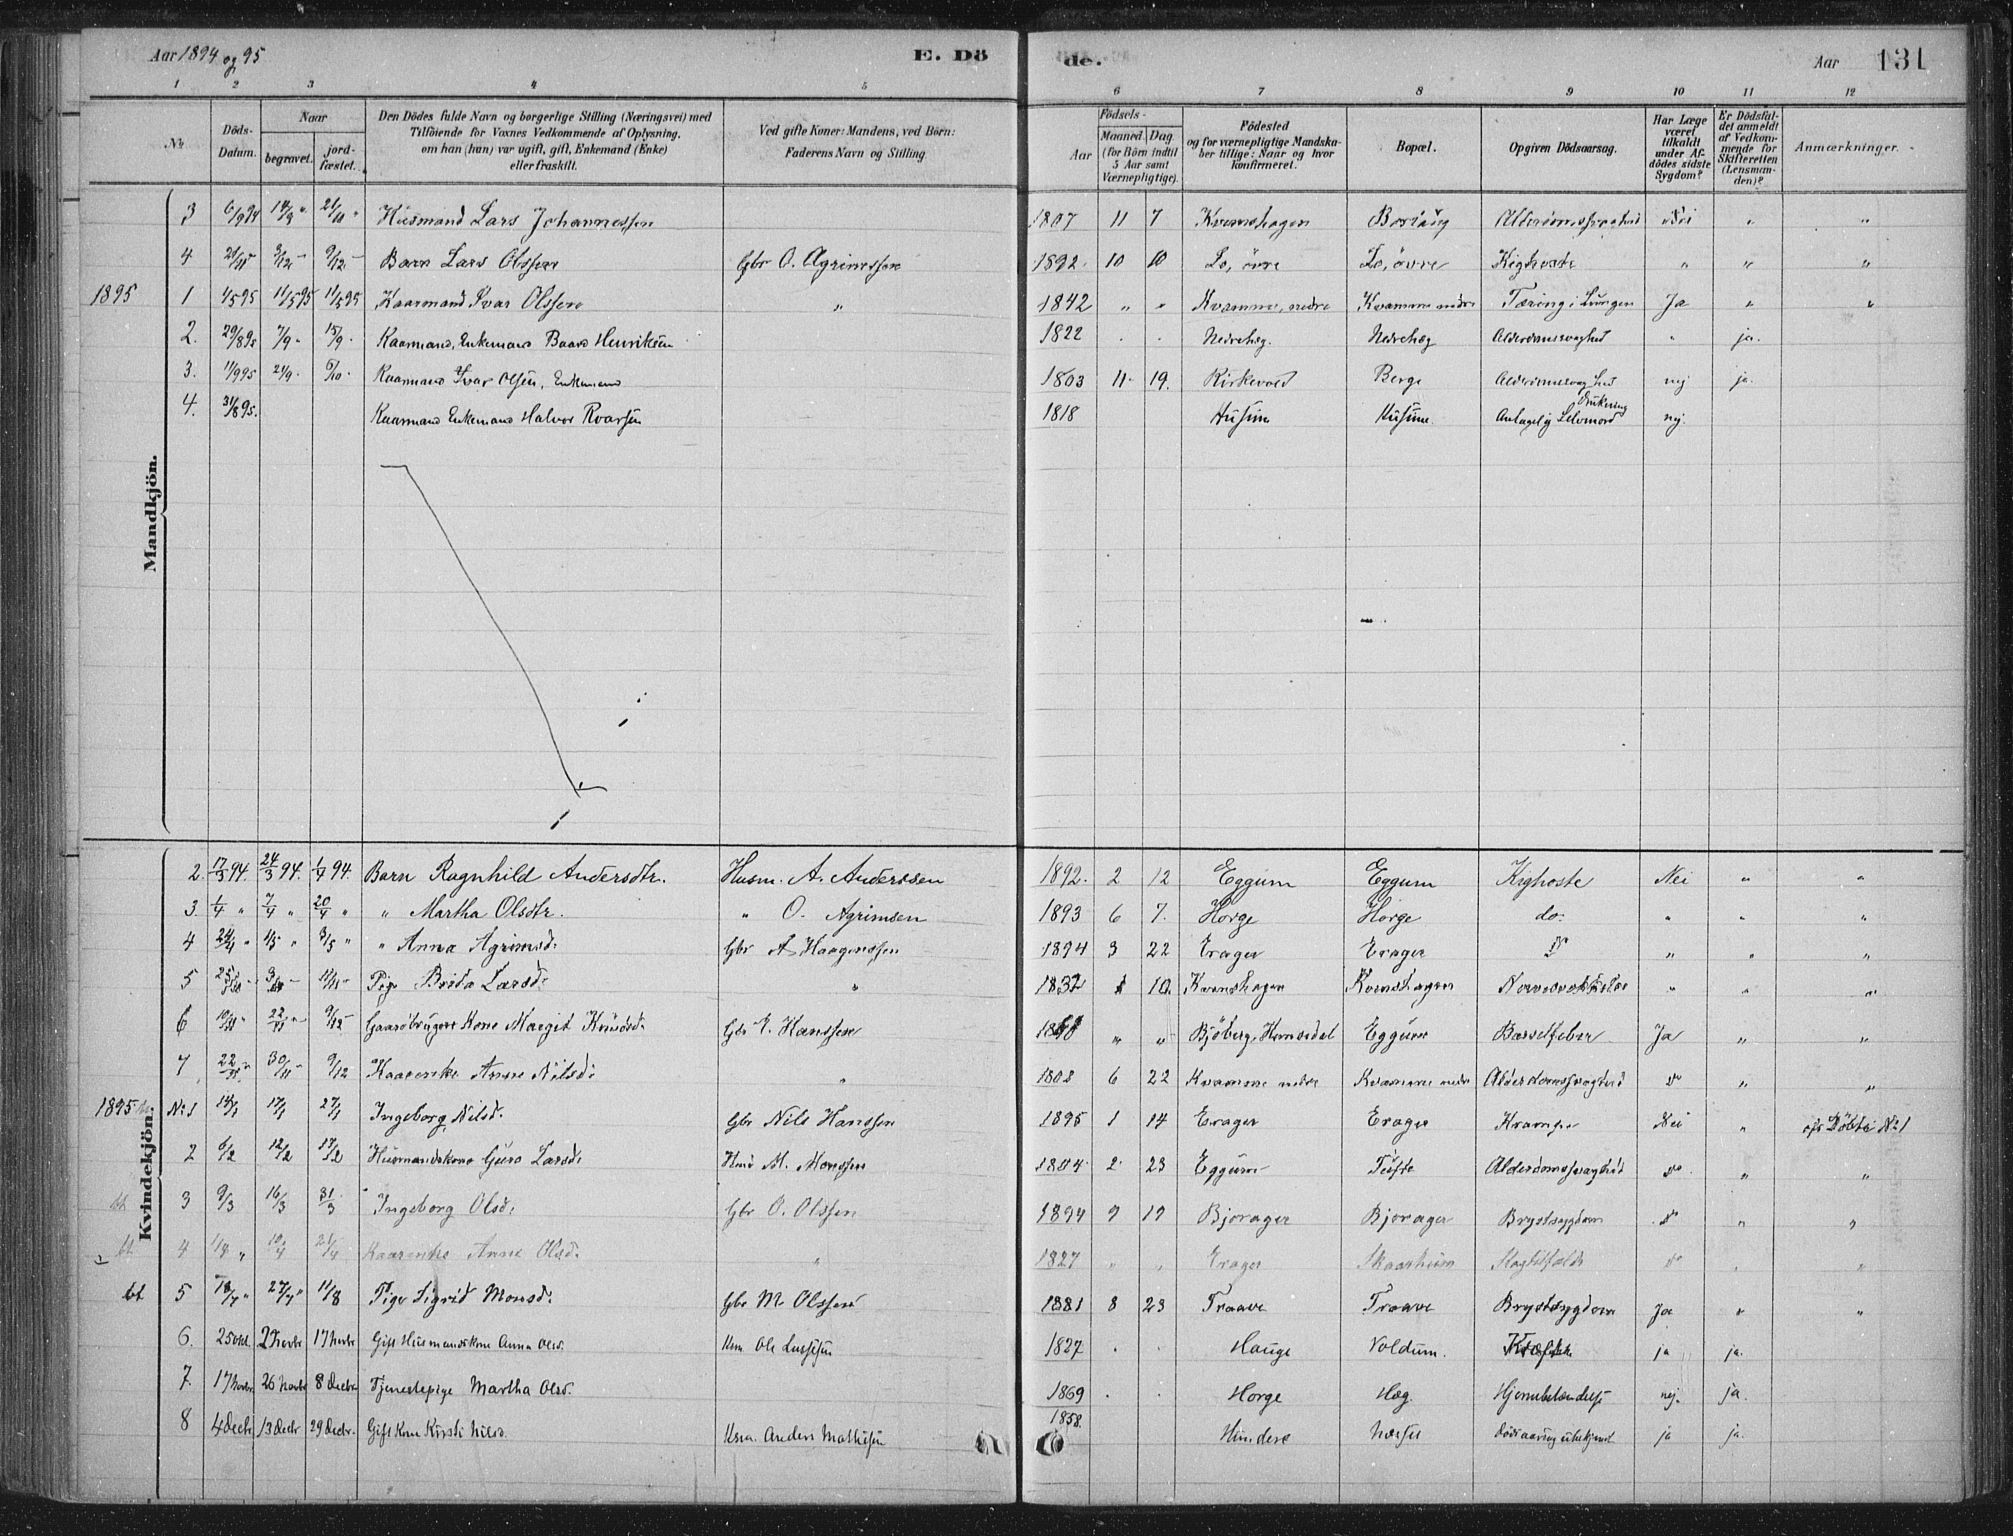 Aar 1894 og 95
E. Döde.
Aar
131
1 2 3 4 5 6 7 8 9 10 11 12
No.
Döds-Datum.
Naar begravet. jordfæstet.
Den Dödes fulde Navn og borgerlige Stilling (Næringsvei) med Tilföiende for Voxnes Vedkommende af Oplysning, om han (hun) var ugift, gift, Enkemand (Enke) eller fraskilt.
Ved gifte Koner: Mandens, ved Börn: Faderens Navn og Stilling
Födsels-
Aar
Maaned. Dag (for Börn indtil 5 Aar samt Værnepligtige).
Födested og for værnepligtige Mandskaber tillige: Naar og hvor konfirmeret.
Bopæl.
Opgiven Dödsaarsag.
Har Læge været tilkaldt under Afdödes sidste Sygdom?
Er Dödsfaldet anmeldt af Vedkommende for Skifteretten (Lensmanden)?
Anmærkninger.
Mandkjön.
3 6/9 94 14/9 " 21/11 " Husmand Lars Johannessen 1807 11 7 Kvamshagen Alderdomssvaghed Nei " "
4 3/12 9/12 Barn Lars Olssen Gbr O. Agrimssen 1892 10 10 Lo, övre Lo, övre Kighoste " " "
1895 1 4/5 95 11/5 95 11/5 95 Kaarmand Ivar Olssen " 1842 " " Kvamme, nedre Kvamme nedre Tæring i Lungen Ja " "
2. 29/8 95 7/9 15/9 Kaarmand, Enkemand Baard Henriksen 1822 . . Nedrehæg. Nedrehæg Alderdomssvaghed " ja.
3. 11/9 95 21/9 6/10 Kaarmand Ivar Olsen, Enkemand 1803 11 19. Kirkevold Berge Alderdomssvaghed nej ja.
4. 31/8 95. Kaarmand Enkemand Halvor Roarsen 1818 Husum Husum Antagelig Selvmord Drukning nej.
Kvindekjön.
2. 17/3 94. 24/3 94. 1/4 94. Barn Ragnhild Andersdtr. Husm. A. Anderssen 1892. 2 12 Eggum Eggum Kighoste Nei " "
3. 1/4 " 7/4 " 20/4 " " Martha Olsdtr. " O. Agrimsen 1893 6 7. Horge Horge do: " " "
4 24/4 " 1/5 " 3/5 " " Anna Agrimsd: Gbr A Haagenssen 1894 3 22 Erager Erager " " "
5 Pige Brita Larsd: " 1832 10. Kvamshagen Kvamshagen " " "
6 22/11 9/12 Gaardbruger Kone Margit Knudsd: Gbr E. Hanssen " " Bjöberg, Hemsedal Eggum Barselfeber Ja " "
7 22/11 30/11 9/12 Kaarenke Anne Nilsd: " 1808 6 22 Kvamme nedre Kvamme nedre Alderdomssvaghed do " "
1895 No 1 14/1 17/1 27/1 Ingeborg Nilsd. Gbr Nils Hanssen 1895 1 14 Erager Erager Krampe Nei " cfr Döbte No 1
2 6/2 12/2 17/2 Husmandskone Guro Larsd: Hmd M. Monssen 2 23 Eggum Tufte Alderdomssvaghed do " "
3 9/3 16/3 31/3 Ingeborg Olsd: Gbr O. Olssen 1894 9 19 Bjorager Bjorager Brystsygdom do " "
bt 4 10/4 21/4 Kaarenke Anne Olsd. " 1827 " " Erager Skaarheim Slagtilfælde do " "
bt 5 18/7 " 27/7 " 11/8 Pige Sigrid Monsd: Gbr M Olssen 1881 8 23 Traave Traave Brystsygdom Ja " "
6. 25 okt. 2 novbr 17 novbr Gift Husmandskone Anna Olsd. Hsm Ole Larssen 1827 . . Hauge Voldum. Kræft ja ja.
7. 17 novbr 26 novbr 8 decbr Tjenestepige Martha Olsd. 1869 . . Horge Hæg. Hjernebetændelse nej. ja.
8 4 decbr 13 decbr 29 decbr. Gift Kone Kirsti Nilsd. Hsm. Anders Mathisen 1858. Hundere Næsse Dödsaarsag ubekjendt ja ja.